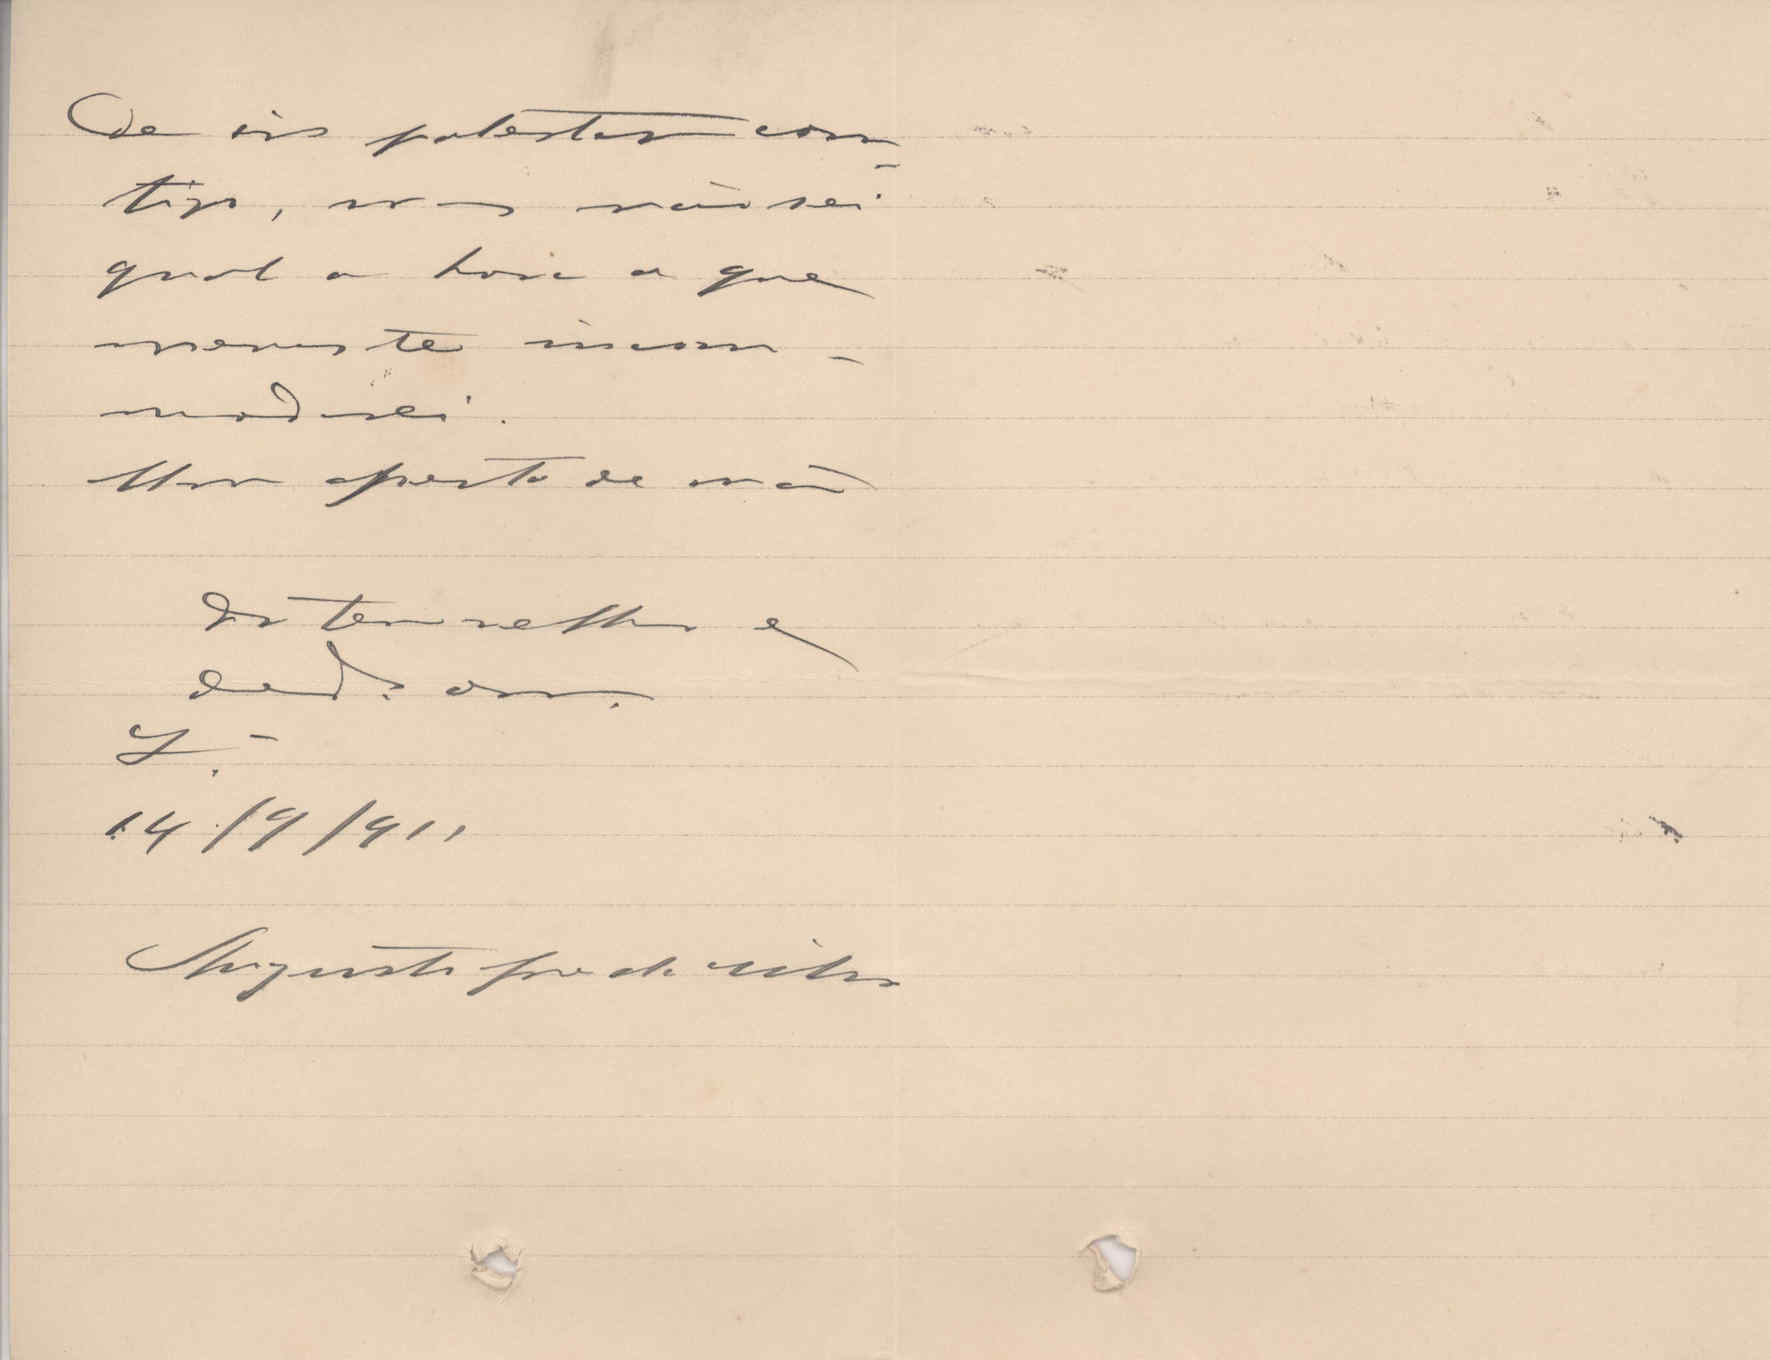 de ir palestrar com-
tigo, mas não sei
qual a hora a que
menos te incom-
modarei.
Um aperto de mão
do teu velho e
ded.º am.
L.
14/9/911
Augusto